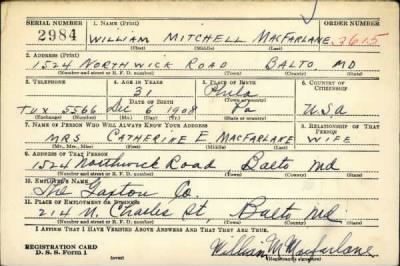 SERIAL NUMBER 1. NAME (Print) ORDER NUMBER
2984 WILLIAM MITCHELL MACFARLANE 3615
(First) (Middle) (Last)
2. ADDRESS (Print)
1524 NORTHWICK ROAD BALTO. MD
(Number and street or R. F. D. number) (Town) (County) (State)
3. TELEPHONE 4. AGE IN YEARS 5. PLACE OF BIRTH 6. COUNTRY OF CITIZENSHIP
31 Phila
DATE OF BIRTH (Town or county)
TUX 5566 Dec 6 1908 Pa USA
(Exchange) (Number) (Mo.) (Day) (Yr.) (State or country)
7. NAME OF PERSON WHO WILL ALWAYS KNOW YOUR ADDRESS 8. RELATIONSHIP OF THAT PERSON
MRS CATHERINE E. MACFARLANE WIFE
(Mr., Mrs., Miss) (First) (Middle) (Last)
9. ADDRESS OF THAT PERSON
1524 Northwick Road Balto Md
(Number and street or R. F. D. number) (Town) (County) (State)
10. EMPLOYER'S NAME
The Co.
11. PLACE OF EMPLOYMENT OR BUSINESS
214 N. Charles St, Balto Md
(Number and street or R. F. D. number) (Town) (County) (State)
I AFFIRM THAT I HAVE VERIFIED ABOVE ANSWERS AND THAT THEY ARE TRUE.
REGISTRATION CARD William M. Macfarlane
D. S. S. Form 1 (over) (Registrant's signature)